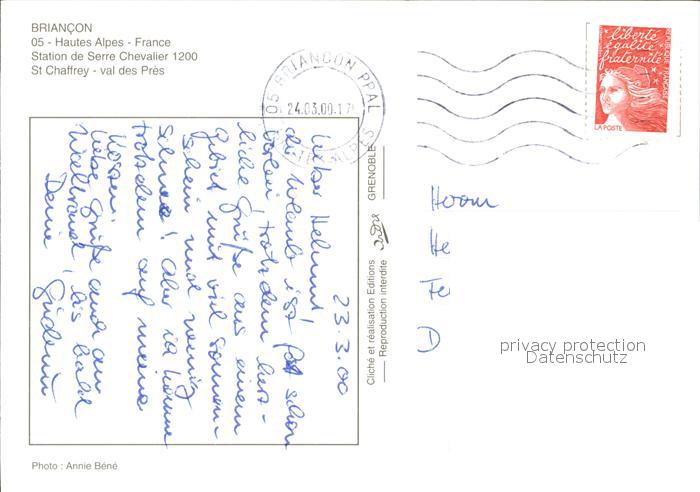 BRIANÇON
05 - Hautes Alpes - France
Station de Serre Chevalier 1200
St Chaffrey - val des Près
05 BRIANCON PPAL
24.03.00
HTES ALPES
liberté
égalité
fraternité
REPUBLIQUE FRANÇAISE
LA POSTE
23.3.00
Lieber Helmut!
der Urlaub ist fast schon
vorbei trotzdem herz-
liche Grüße aus einem
Gebiet mit viel Sonnen-
schein und wenig
Schnee! Aber ich komme
trotzdem auf meine
Kosten!
Liebe Grüße auch an
Waltraud, bis bald
Deine
Cliché et réalisation Editions André GRENOBLE
Reproduction interdite
He
D
privacy protection
Datenschutz
Photo : Annie Béné